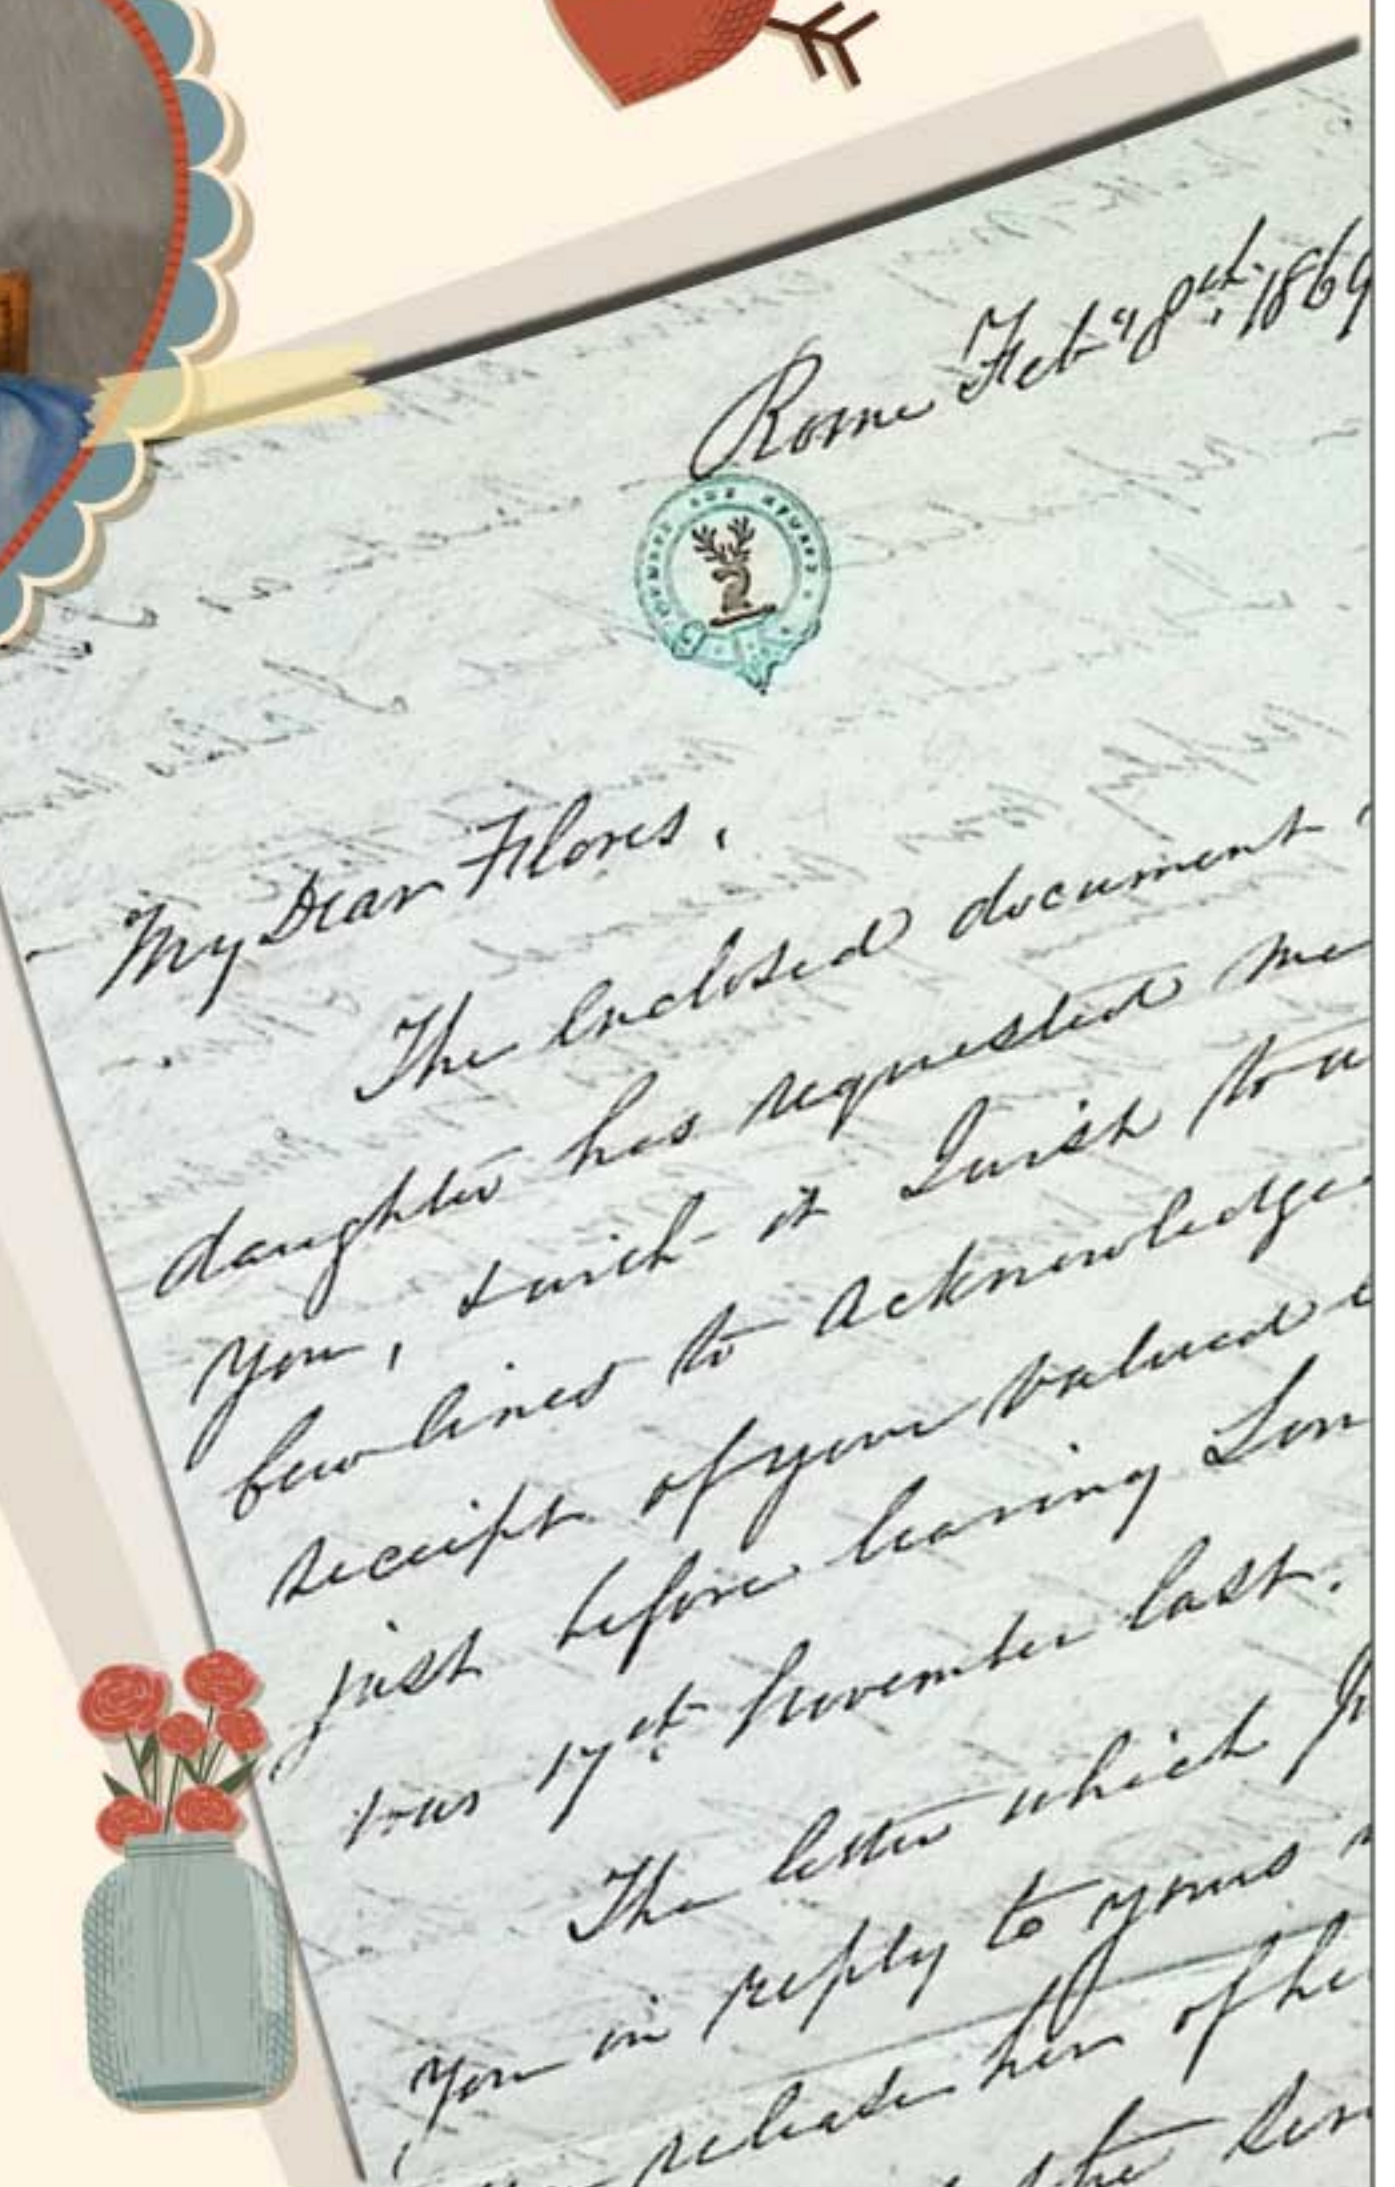 Rome Feb 18th 1869
My Dear Flores,
The enclosed document
daughter has requested me
you, with it I wish to
few lines to acknowledge
receipt of your valued
just before leaving Lon
17th November last.
The letter which
you in reply to yours
release her of he
the